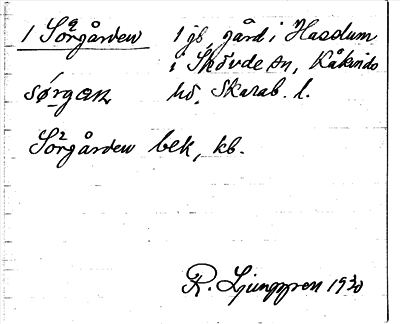 1 Sörgården 1 gs, gård i Hasslum
i Skövde sn, Kåkinds
sørgæn hd, Skarab. l.
Sörgården bek, kb.
R. Ljunggren 1930